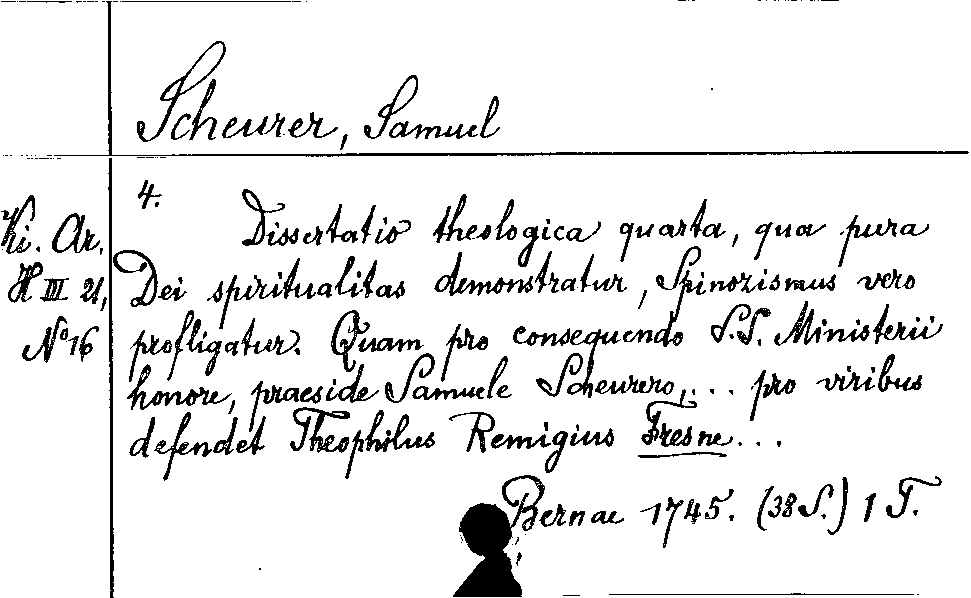 Scheurer, Samuel
4.
Ki. Ar.
H III 21,
No 16
Dissertatio theologica quarta, qua pura
Dei spiritualitas demonstratur, Spinozismus vero
profligatur. Quam pro consequendo S.S. Ministerii
honore, praeside Samuele Scheurero,... pro viribus
defendet Theophilus Remigius Fresne...
Bernae 1745. (38 S.) 1 T.